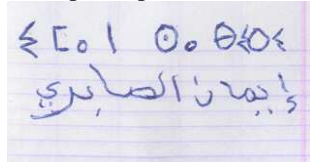 ⵉⵎⴰⵏ ⵙⴰⴱⵉⵔⵉ
إيمان الصابري